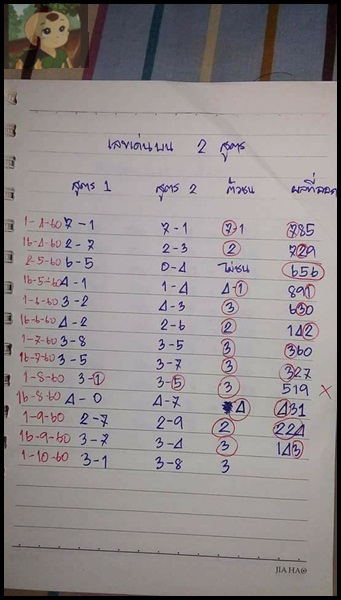 เลขเด่นบน 2 สูตร
สูตร 1 สูตร 2 ตัวชน ผลที่ออก
1-4-60 7-1 7-1 7-1 785
16-4-60 2-7 2-3 2 729
2-5-60 6-5 0-4 ไม่ชน 656
16-5-60 4-1 1-4 4-1 891
1-6-60 3-2 4-3 3 630
16-6-60 4-2 2-6 2 142
1-7-60 3-8 3-5 3 360
16-7-60 3-5 3-7 3 327
1-8-60 3-1 3-5 3 519 ×
16-8-60 4-0 4-7 4 431
1-9-60 2-7 2-9 2 224
16-9-60 3-7 3-4 3 143
1-10-60 3-1 3-8 3
JIA HAO